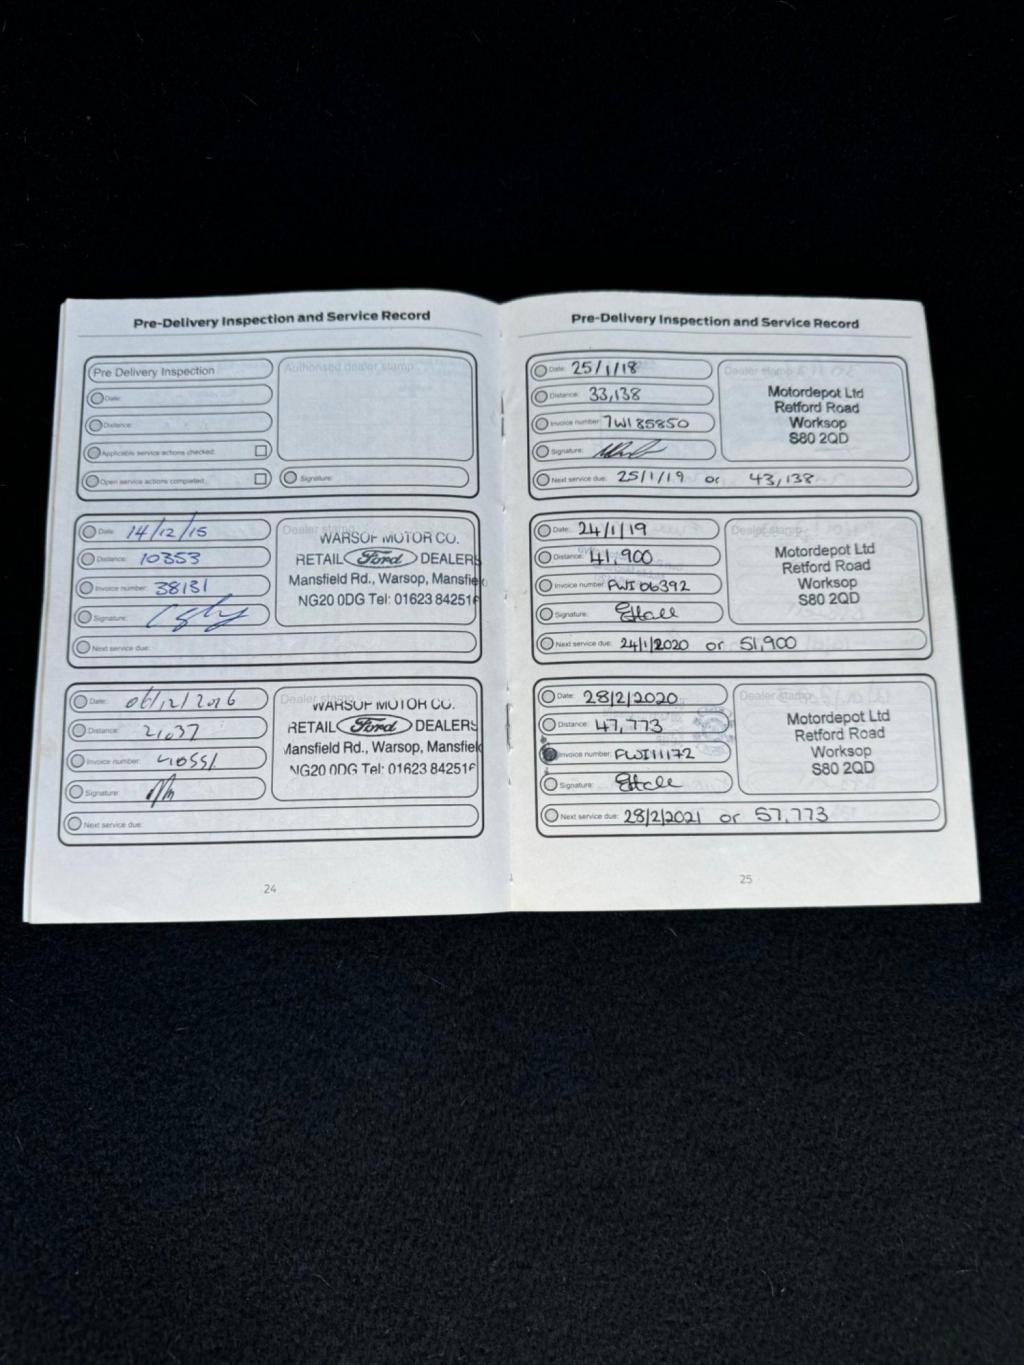 Pre-Delivery Inspection and Service Record
Pre Delivery Inspection
Authorised dealer stamp
Date:
Distance:
Applicable service actions checked:
Open service actions completed:
Signature:
Date: 14/12/15
Distance: 10353
Invoice number: 38131
Signature:
Next service due:
Dealer stamp
WARSOP MOTOR CO.
RETAIL Ford DEALERS
Mansfield Rd., Warsop, Mansfie
NG20 0DG Tel: 01623 84251
Date: 06/12/2016
Distance: 21037
Invoice number: 40551
Signature:
Next service due:
Dealer stamp
WARSOP MOTOR CO.
RETAIL Ford DEALERS
Mansfield Rd., Warsop, Mansfiel
NG20 0DG Tel: 01623 84251
24
Pre-Delivery Inspection and Service Record
Date: 25/1/18
Distance: 33,138
Invoice number: 7WI85850
Signature:
Next service due: 25/1/19 or 43,138
Dealer stamp
Motordepot Ltd
Retford Road
Worksop
S80 2QD
Date: 24/1/19
Distance: 41,900
Invoice number: PWI06392
Signature: EHall
Next service due: 24/1/2020 or 51,900
Dealer stamp
Motordepot Ltd
Retford Road
Worksop
S80 2QD
Date: 28/2/2020
Distance: 47,773
Invoice number: PWI11172
Signature: EHall
Next service due: 28/2/2021 or 57,773
Dealer stamp
Motordepot Ltd
Retford Road
Worksop
S80 2QD
25